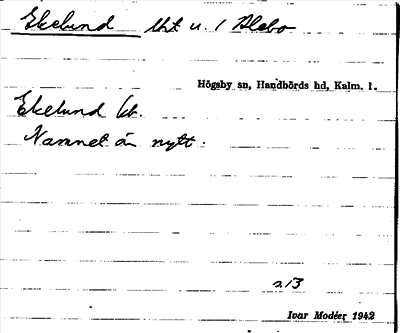 Ekelund lht u. 1 Alebo
Högsby sn, Handbörds hd, Kalm. l.
Ekelund kt.
Namnet är nytt.
213
Ivar Modéer 1942